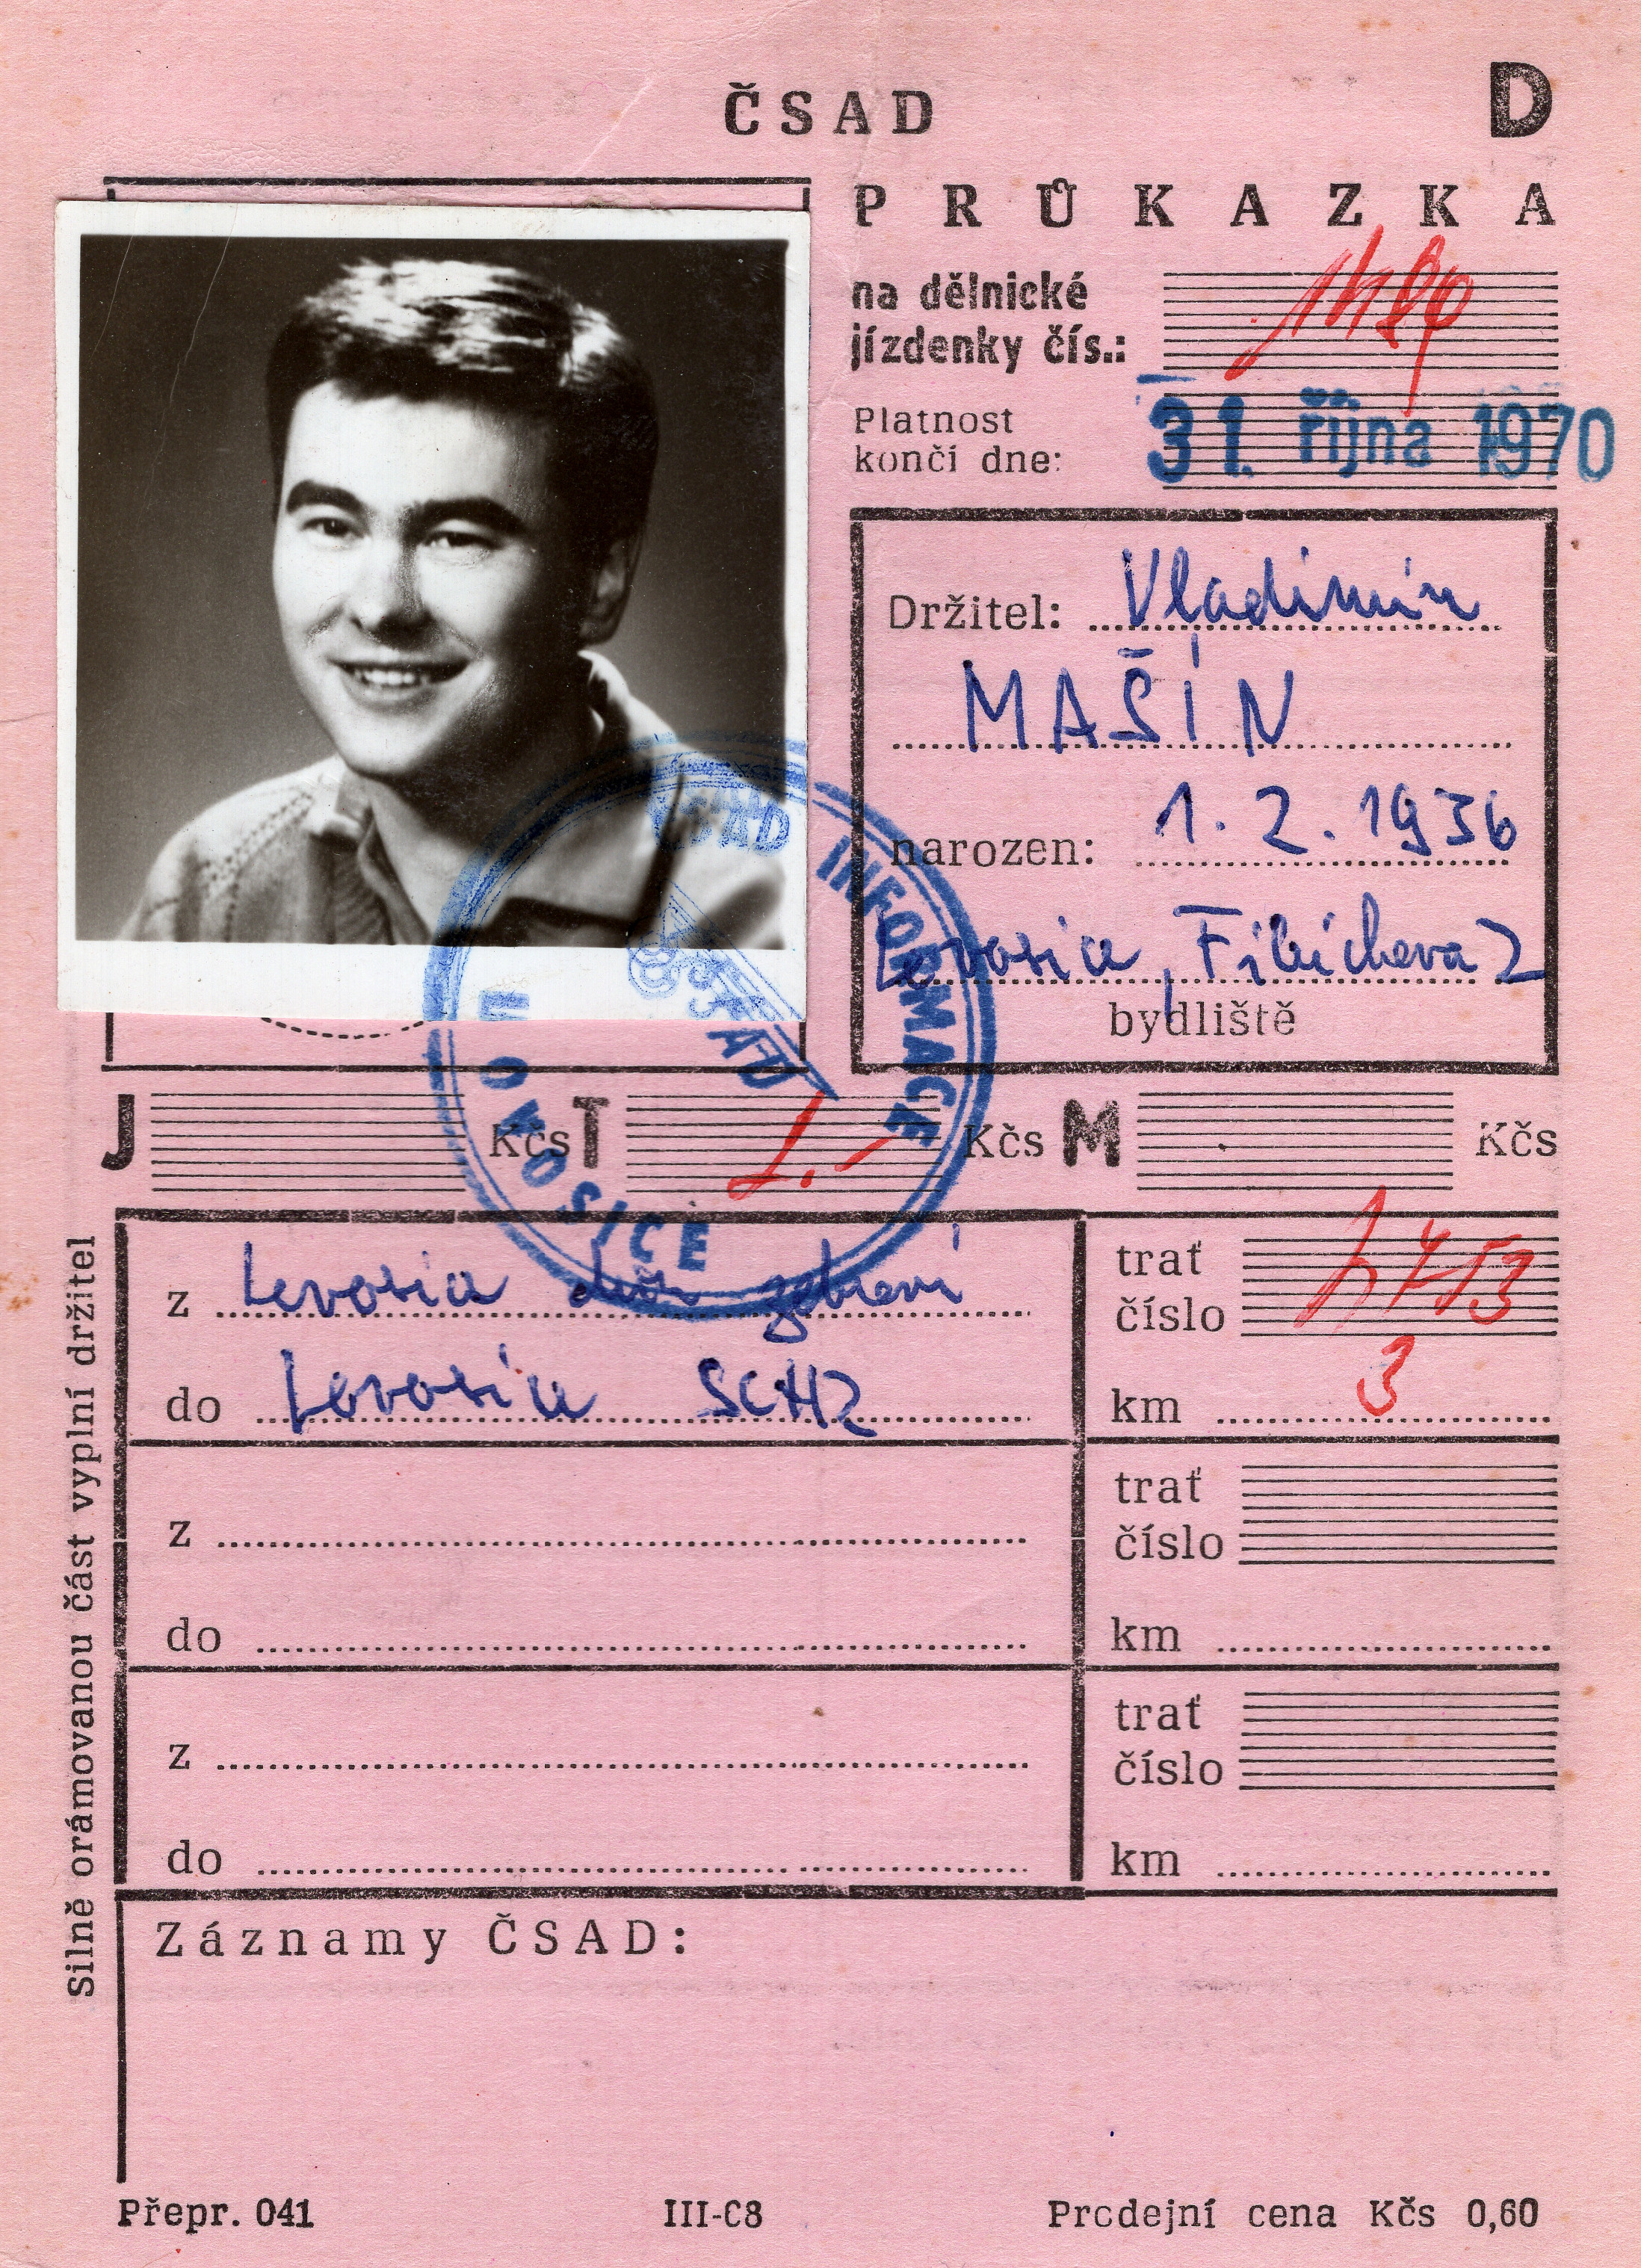 ČSAD
D
PRŮKAZKA
na dělnické
jízdenky čís.:
Platnost
končí dne: 31. října 1970
Držitel: Vladimír
MAŠÍN
narozen: 1.2.1936
Lovosice, Fibichova 2
bydliště
ČSAD INFORMACE
ČSAD
LOVOSICE
J Kčs T 2.- Kčs M Kčs
Silně orámovanou část vyplní držitel
z Lovosice
trať
číslo
do Lovosice SCHZ
km 3
trať
z
číslo
do
km
trať
z
číslo
do
km
Záznamy ČSAD:
Přepr. 041 III-C8 Prodejní cena Kčs 0,60